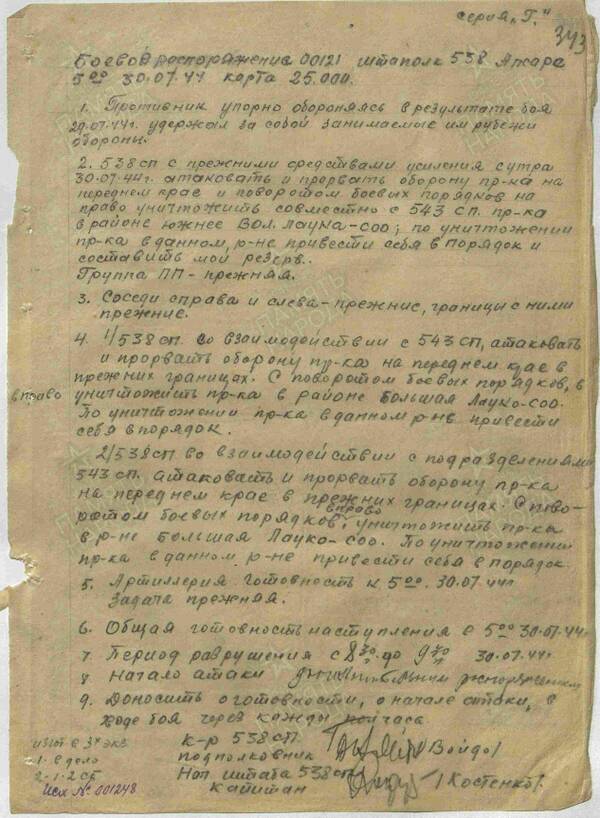 серия „Г."
343
Боевое распоряжение 00121 штаполк 538 Апсаре
5⁰⁰ 30.07.44 карта 25.000.
1. Противник упорно обороняясь в результате боя
29.07.44г. удержал за собой занимаемые им рубежи
обороны.
2. 538 сп с прежними средствами усиления с утра
30.07.44г. атаковать и прорвать оборону пр-ка на
переднем крае и поворотом боевых порядков на
право уничтожить совместно с 543 сп. пр-ка
в районе южнее Вол. Лаука-Соо; по уничтожении
пр-ка в данном р-не привести себя в порядок и
составить мой резерв.
Группа ПП - прежняя.
3. Соседи справа и слева - прежние, границы с ними
прежние.
4. 1/538 сп. во взаимодействии с 543 сп, атаковать
и прорвать оборону пр-ка на переднем крае в
прежних границах. С поворотом боевых порядков, в
вправо
уничтожить пр-ка в районе Большая Лауко-Соо.
По уничтожении пр-ка в данном р-не привести
себя в порядок.
2/538 сп во взаимодействии с подразделениями
543 сп. атаковать и прорвать оборону пр-ка
на переднем крае в прежних границах. С пово-
ротом боевых порядков вправо, уничтожить пр-ка
в р-не Большая Лауко-Соо. По уничтожении
пр-ка в данном р-не привести себя в порядок
5. Артиллерия готовность к 5⁰⁰ 30.07.44г
Задача прежняя.
6. Общая готовность наступления с 5⁰⁰ 30.07.44г.
7 Период разрушения с до 30.07.44г
8 Начало атаки
9. Доносить о готовности, о начале атаки, в
ходе боя через каждые пол часа
к-р 538 сп
подполковник /Войдо/
Нач штаба 538 сп
капитан /Костенко/.
изгот в 3х экз
1 - в дело
2 - 1-2 сп
Исх № 001248